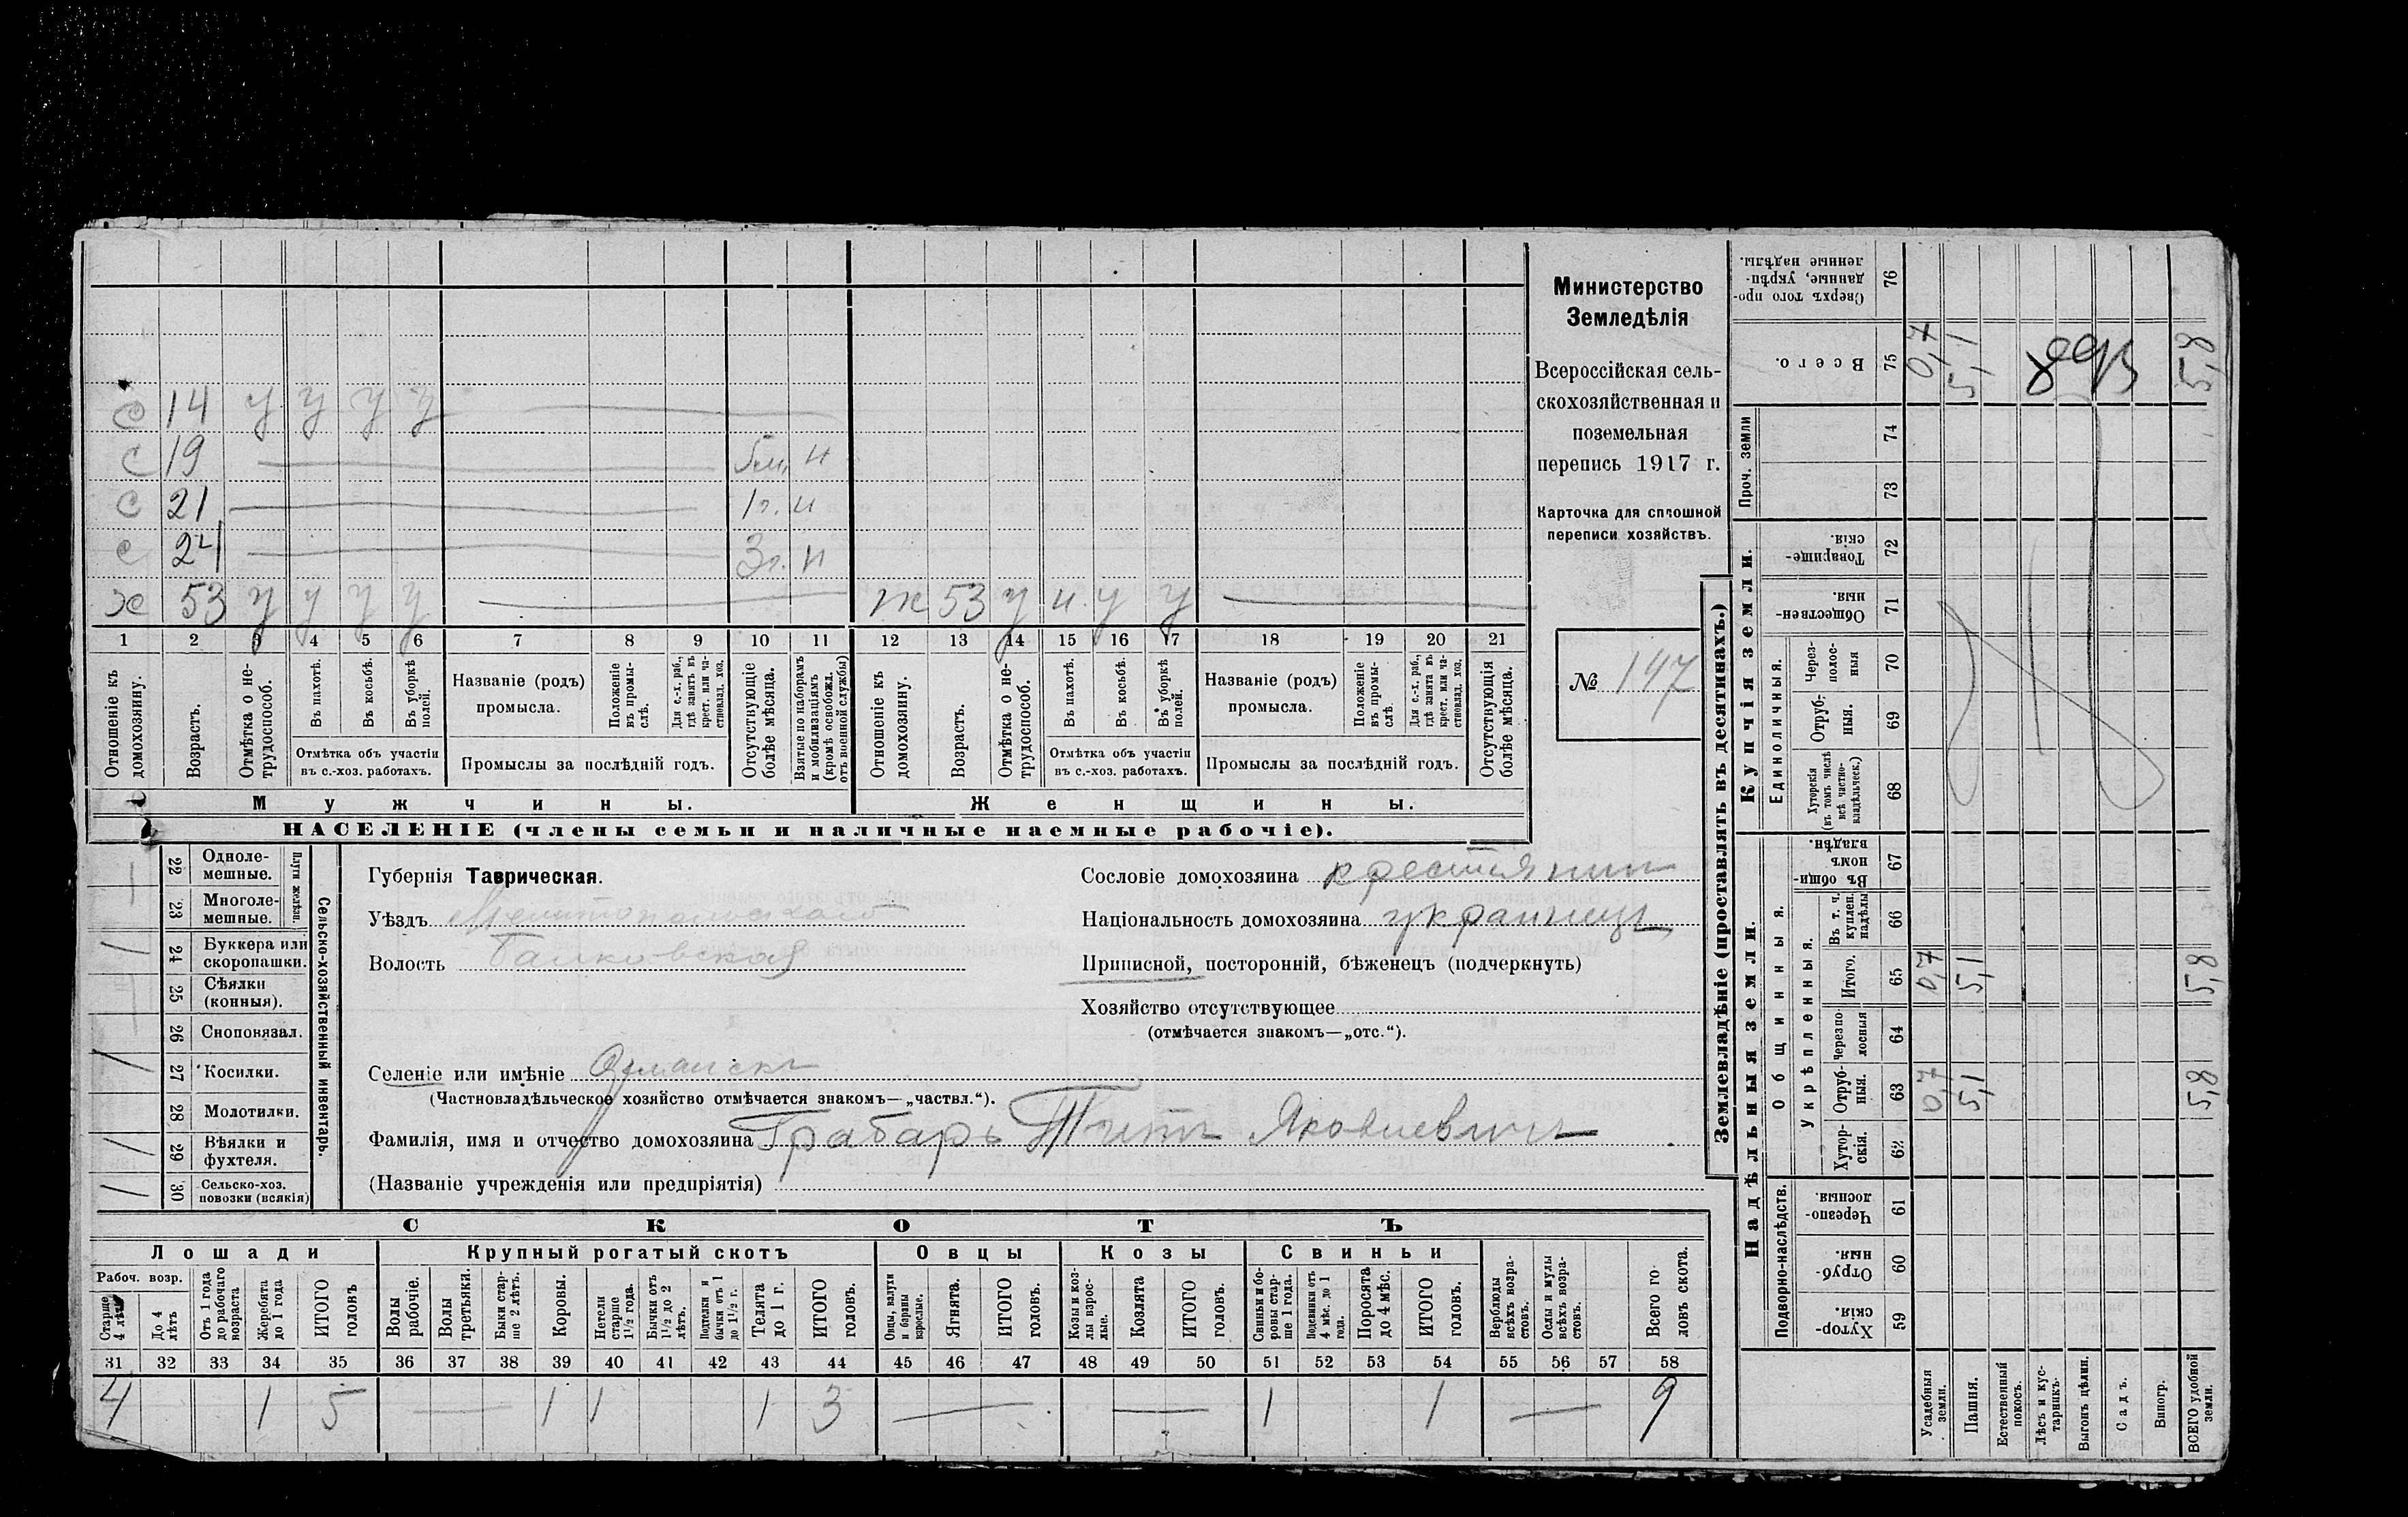 С 14 у у у у
С 19 5м. н
С 21 1г. н
С 24 3г. н
Х 53 у у у у Ж 53 у н. у у
1 2 3 4 5 6 7 8 9 10 11 12 13 14 15 16 17 18 19 20 21
Отношеніе къ домохозяину.
Возрастъ.
Отмѣтка о нетрудоспособ.
Въ пахотѣ.
Въ косьбѣ.
Въ уборкѣ полей.
Отмѣтка объ участіи
въ с.-хоз. работахъ.
Названіе (родъ)
промысла.
Положеніе въ промыслѣ.
Для с.-х. раб., гдѣ занятъ въ крест. или частновлад. хоз.
Промыслы за послѣдній годъ.
Отсутствующіе болѣе мѣсяца.
Взятые по наборамъ и мобилизаціямъ (кромѣ освобожд. отъ военной службы)
Отношеніе къ домохозяину.
Возрастъ.
Отмѣтка о нетрудоспособ.
Въ пахотѣ.
Въ косьбѣ.
Въ уборкѣ полей.
Отмѣтка объ участіи
въ с.-хоз. работахъ.
Названіе (родъ)
промысла.
Положеніе въ промыслѣ.
Для с.-х. раб., гдѣ занята въ крест. или частновлад. хоз.
Промыслы за послѣдній годъ.
Отсутствующія болѣе мѣсяца.
Мужчины. Женщины.
НАСЕЛЕНІЕ (члены семьи и наличные наемные рабочіе).
Министерство
Земледѣлія
Всероссійская сель-
скохозяйственная и
поземельная
перепись 1917 г.
Карточка для сплошной
переписи хозяйствъ.
№ 147
Сельско-хозяйственный инвентарь.
Плуги желѣзн.
22 Одноле-
мешные.
1 23 Многоле-
мешные.
1 24 Буккера или
скоропашки.
25 Сѣялки
(конныя).
26 Сноповязал.
1 27 Косилки.
28 Молотилки.
1 29 Вѣялки и
фухтеля.
1 30 Сельско-хоз.
повозки (всякія)
Губернія Таврическая.
Уѣздъ Мелитопольскаго
Волость Балковская
Сословіе домохозяина крестьянин
Національность домохозяина украинецъ
Приписной, посторонній, бѣженецъ (подчеркнуть)
Хозяйство отсутствующее
(отмѣчается знакомъ—„отс.“).
Селеніе или имѣніе
(Частновладѣльческое хозяйство отмѣчается знакомъ—„частвл.“).
Фамилія, имя и отчество домохозяина Грабарь Титъ Яковлевичъ
(Названіе учрежденія или предпріятія)
СКОТЪ
Лошади Крупный рогатый скотъ Овцы Козы Свиньи
Рабоч. возр.
Старше 4 лѣтъ
До 4 лѣтъ
Отъ 1 года до рабочаго возраста
Жеребята до 1 года
ИТОГО головъ
Волы рабочіе.
Волы третьяки.
Быки старше 2 лѣтъ.
Коровы.
Нетели старше 1½ года.
Бычки отъ 1½ до 2 лѣтъ.
Подтелки и бычки отъ 1 до 1½ г.
Телята до 1 г.
ИТОГО головъ.
Овцы, валухи и бараны взрослые.
Ягнята.
ИТОГО головъ.
Козы и козлы взрослые.
Козлята
ИТОГО головъ.
Свиньи и боровы старше 1 года.
Подсвинки отъ 4 мѣс. до 1 года.
Поросята до 4 мѣс.
ИТОГО головъ.
Верблюды всѣхъ возрастовъ.
Ослы и мулы всѣхъ возрастовъ.
Всего головъ скота.
31 32 33 34 35 36 37 38 39 40 41 42 43 44 45 46 47 48 49 50 51 52 53 54 55 56 57 58
4 1 5 — 1 1 1 3 — — 1 1 — 9
Землевладѣніе (проставлять въ десятинахъ.)
Надѣльныя земли. Купчія земли.
Подворно-наслѣдств.
Общинныя.
Укрѣпленныя.
Единоличныя.
Проч. земли
59 Хутор-
скія.
60 Отруб-
ныя.
61 Черезпо-
лосныя.
62 Хутор-
скія.
63 Отруб-
ныя.
64 Черезпо-
лосныя
65 Итого.
66 Въ т. ч.
куплен.
надѣлы
67 Въ общин-
номъ
владѣн.
68 Хуторскія
(въ томъ числѣ
всѣ частно-
владѣльческ.)
69 Отруб-
ныя.
70 Через-
полос-
ныя
71 Обществен-
ныя.
72 Товарище-
скія.
73
74
75 Всего.
76 Сверхъ того про-
данные, укрѣп-
ленные надѣлы.
Усадебныя земли. 0,7 0,7 0,7
Пашня. 5,1 5,1 5,1
Естественный покосъ.
Лѣсъ и кустарникъ.
Выгонъ цѣлин.
Садъ.
Виногр.
ВСЕГО удобной земли. 5,8 5,8 5,8